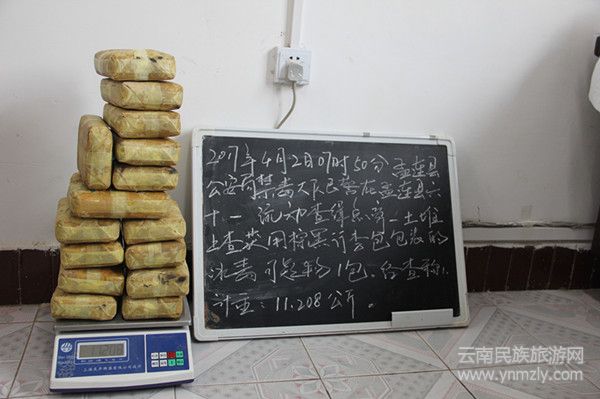 2017年4月2日07时50分孟连县
公安局禁毒大队民警在孟连县六
十一流动查缉点旁一土堆
上查获用棕黑行李包包装的
冰毒可疑物1包、经查称、
计重：11.208公斤。
云南民族旅游网
www.ynmzly.com